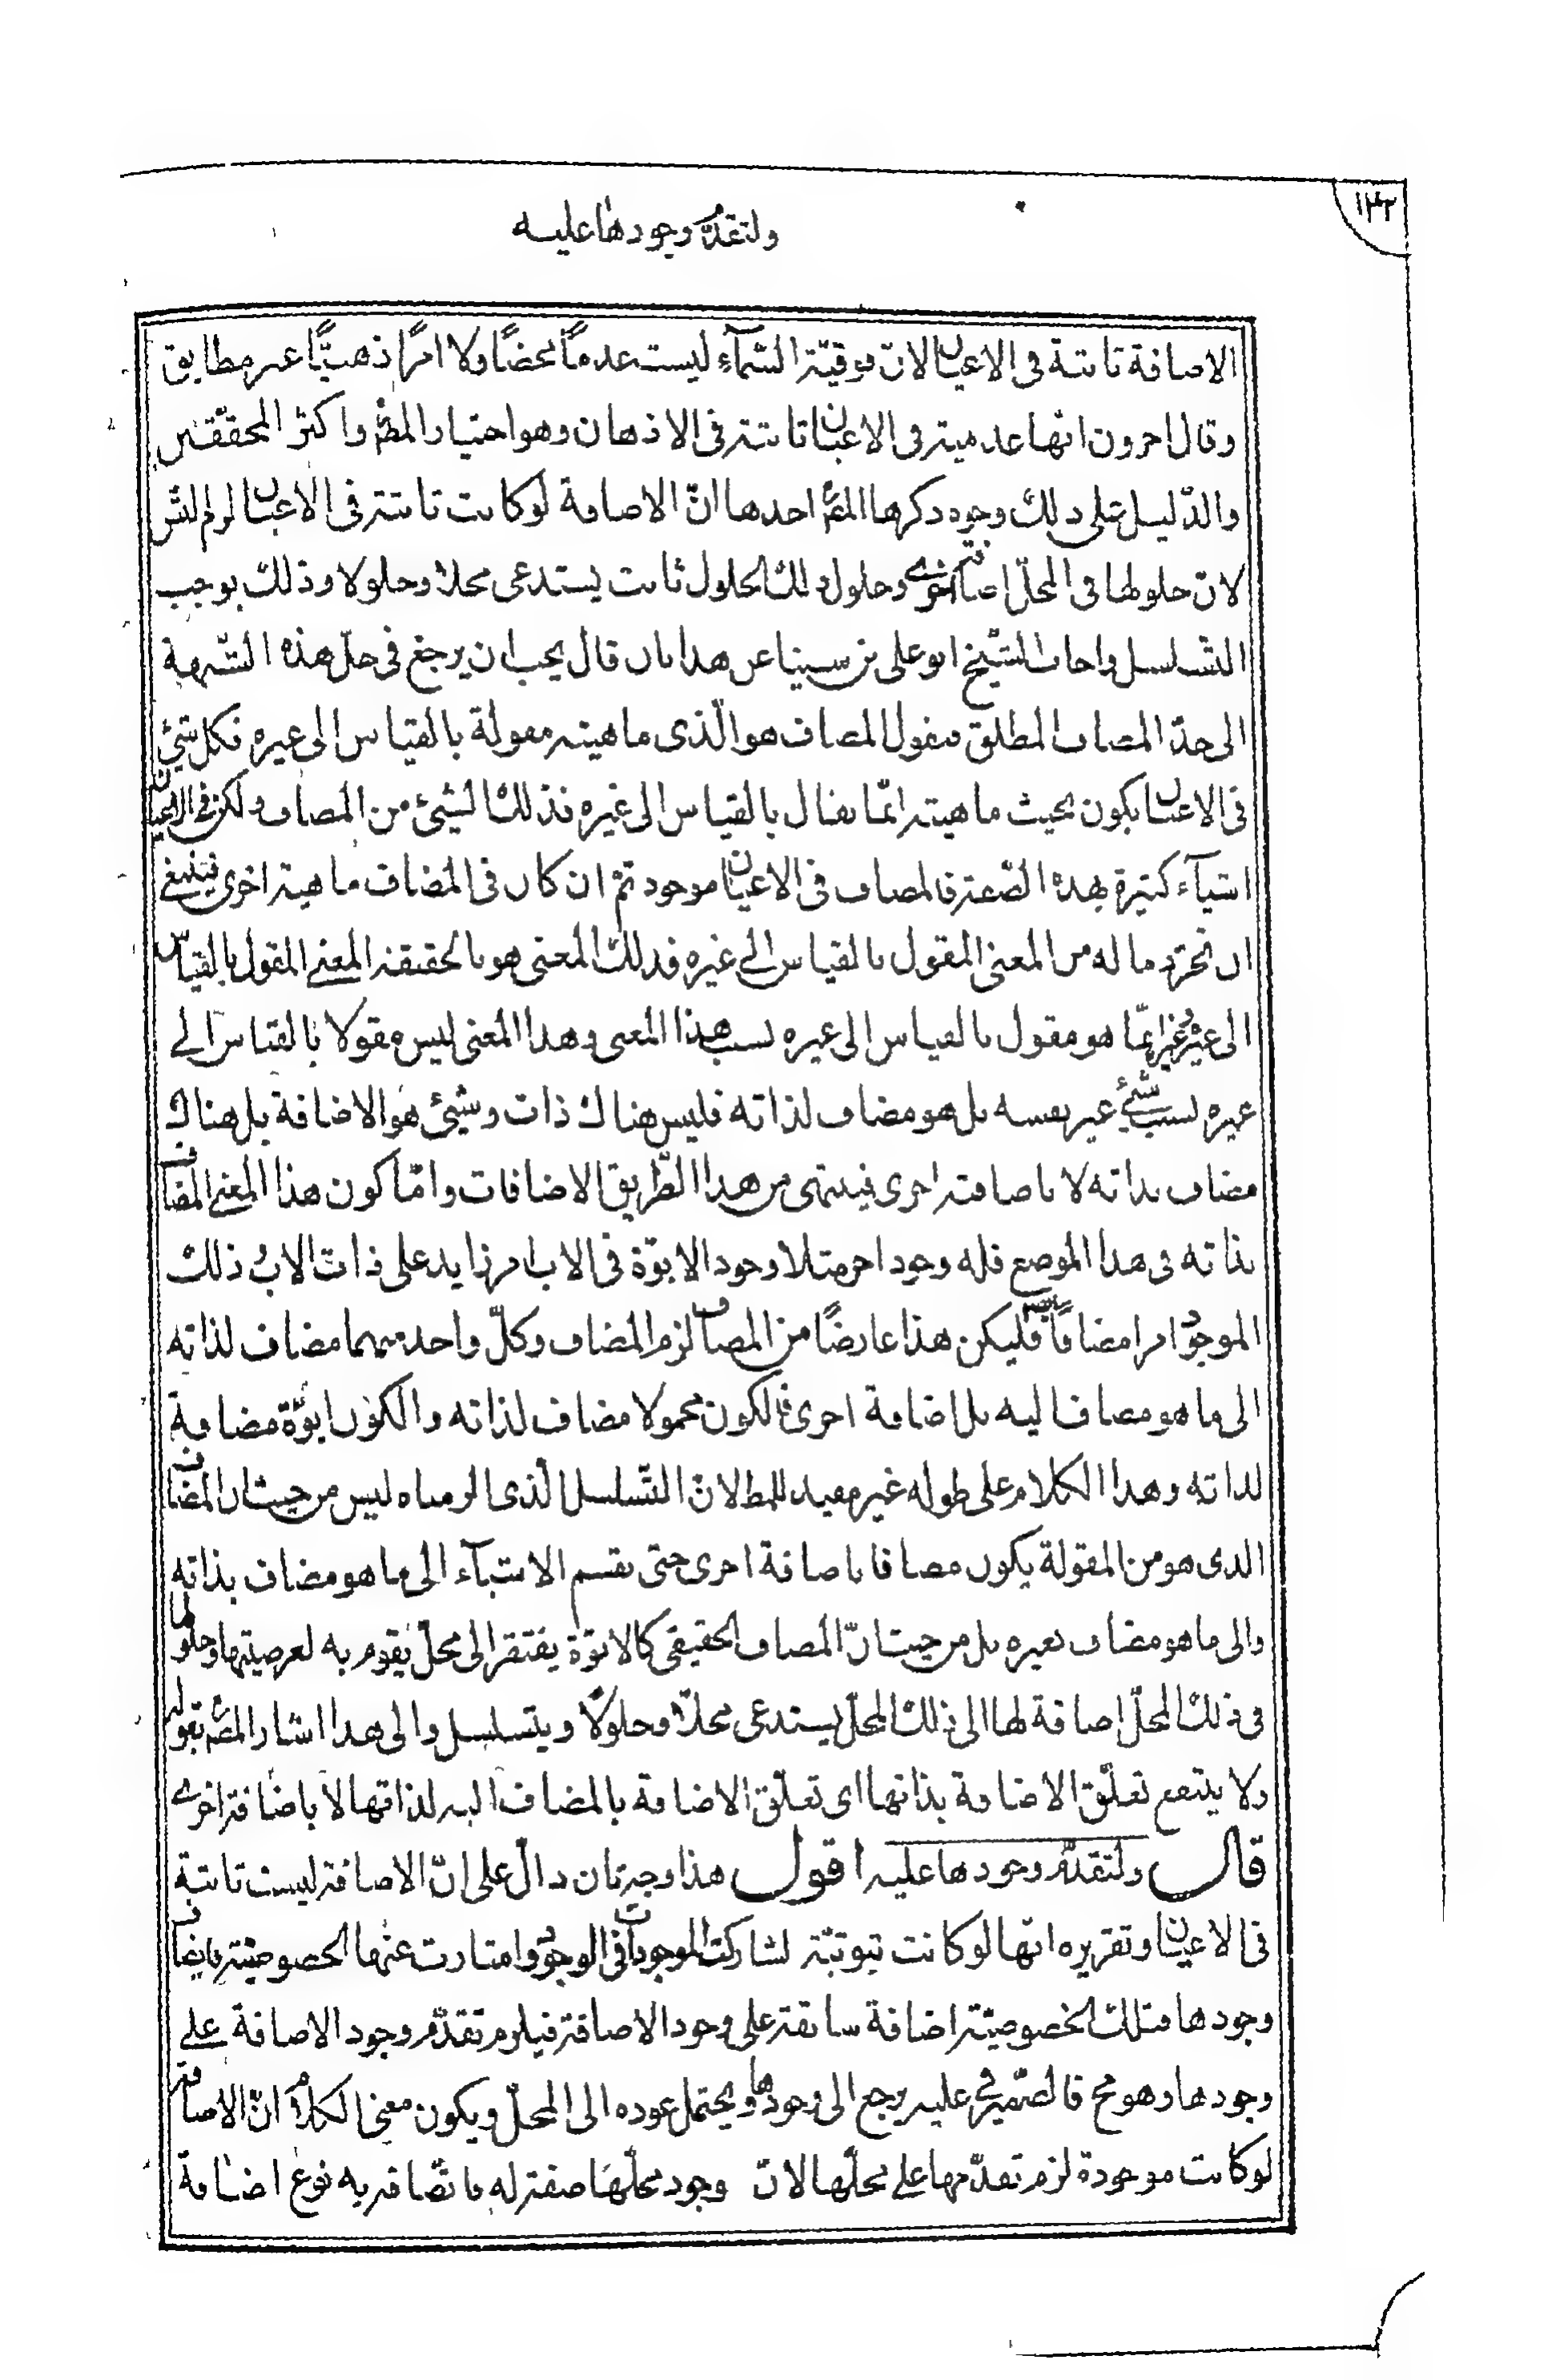 ١٤٢
ولتقدّم وجودها عليه
الاضافة ثابتة فى الاعيان لان فوقيّة السّمآء ليست عدماً محضاً ولا امراً ذهنيّاً غير مطابق
وقال اخرون انّها عدمية فى الاعيان ثابتة فى الاذهان وهو اختيار المصّ واكثر المحققين
والدّليل على ذلك وجوه ذكرها المصّ احدها انّ الاضافة لو كانت ثابتة فى الاعيان لزم التس
لان حلولها فى المحلّ اضافة اخرى وحلول ذلك الحلول ثابت يستدعى محلا وحلولا وذلك يوجب
التسلسل واجاب الشّيخ ابو على بن سينا عن هذا بان قال يجب ان يرجع فى حلّ هذه الشّبهة
الى حدّ المضاف المطلق فنقول المضاف هو الّذى ماهيته مقولة بالقياس الى غيره فكل شئ
فى الاعيان يكون بحيث ماهيته انّما يقال بالقياس الى غيره فذلك الشيئ من المضاف ولكن فى الاعيان
اشيآء كثيرة بهذه الصّفة فالمضاف فى الاعيان موجود ثمّ ان كان فى المضاف ماهية اخرى فينبغى
ان نجرّد ماله من المعنى المقول بالقياس الى غيره فذلك المعنى هو بالحقيقة المعنى المقول بالقياس
الى غيره وغيره انّما هو مقول بالقياس الى غيره بسبب هذا المعنى وهذا المعنى ليس مقولا بالقياس الى
غيره بسبب شئ غير نفسه بل هو مضاف لذاته فليس هناك ذات وشيئ هو الاضافة بل هناك
مضاف بذاته لا باضافة اخرى فينتهى من هذا الطّريق الاضافات وامّا كون هذا المعنى المضاف
بذاته فى هذا الموضع فله وجود اخر مثلا وجود الابوّة فى الاب امر زايد على ذات الاب وذلك
الموجود امر مضاف ايضا فليكن هذا عارضاً من المضاف لزم المضاف وكلّ واحد منهما مضاف لذاته
الى ما هو مضاف اليه بلا اضافة اخرى فالكون محمولا مضاف لذاته والكون ابوّة مضافة
لذاته وهذا الكلام على طوله غير مفيد للمطلان التّسلسل الّذى الزمناه ليس من حيث ان المضاف
الذى هو من المقولة يكون مضافا باضافة اخرى حتى يقسم الاشيآء الى ما هو مضاف بذاته
والى ما هو مضاف بغيره بل من حيث انّ المضاف الحقيقى كالابوّة يفتقر الى محلّ يقوم به لعرضيتها وحلولها
فى ذلك المحلّ اضافة لها الى ذلك المحلّ يستدعى محلّا وحلولًا ويتسلسل والى هذا اشار المصّ بقوله
ولا ينفع تعلّق الاضافة بذاتها اى تعلّق الاضافة بالمضاف اليه لذاتها لا باضافة اخرى
قال ولتقدّم وجودها عليه اقول هذا وجه ثان دالّ على انّ الاضافة ليست ثابتة
فى الاعيان وتقريره انّها لو كانت ثبوتيّة لشاركت الموجودات فى الوجود وامتازت عنها الخصوصيّة فاتصاف
وجودها بتلك الخصوصيّة اضافة سابقة على وجود الاضافة فيلزم تقدّم وجود الاضافة على
وجودها وهو مح فالضّمير فى عليه يرجع الى وجودها ويحتمل عوده الى المحلّ ويكون معنى الكلام انّ الاضافة
لو كانت موجودة لزم تقدّمها على محلّها لانّ وجود محلّها صفة له فاتّصافه به نوع اضافة